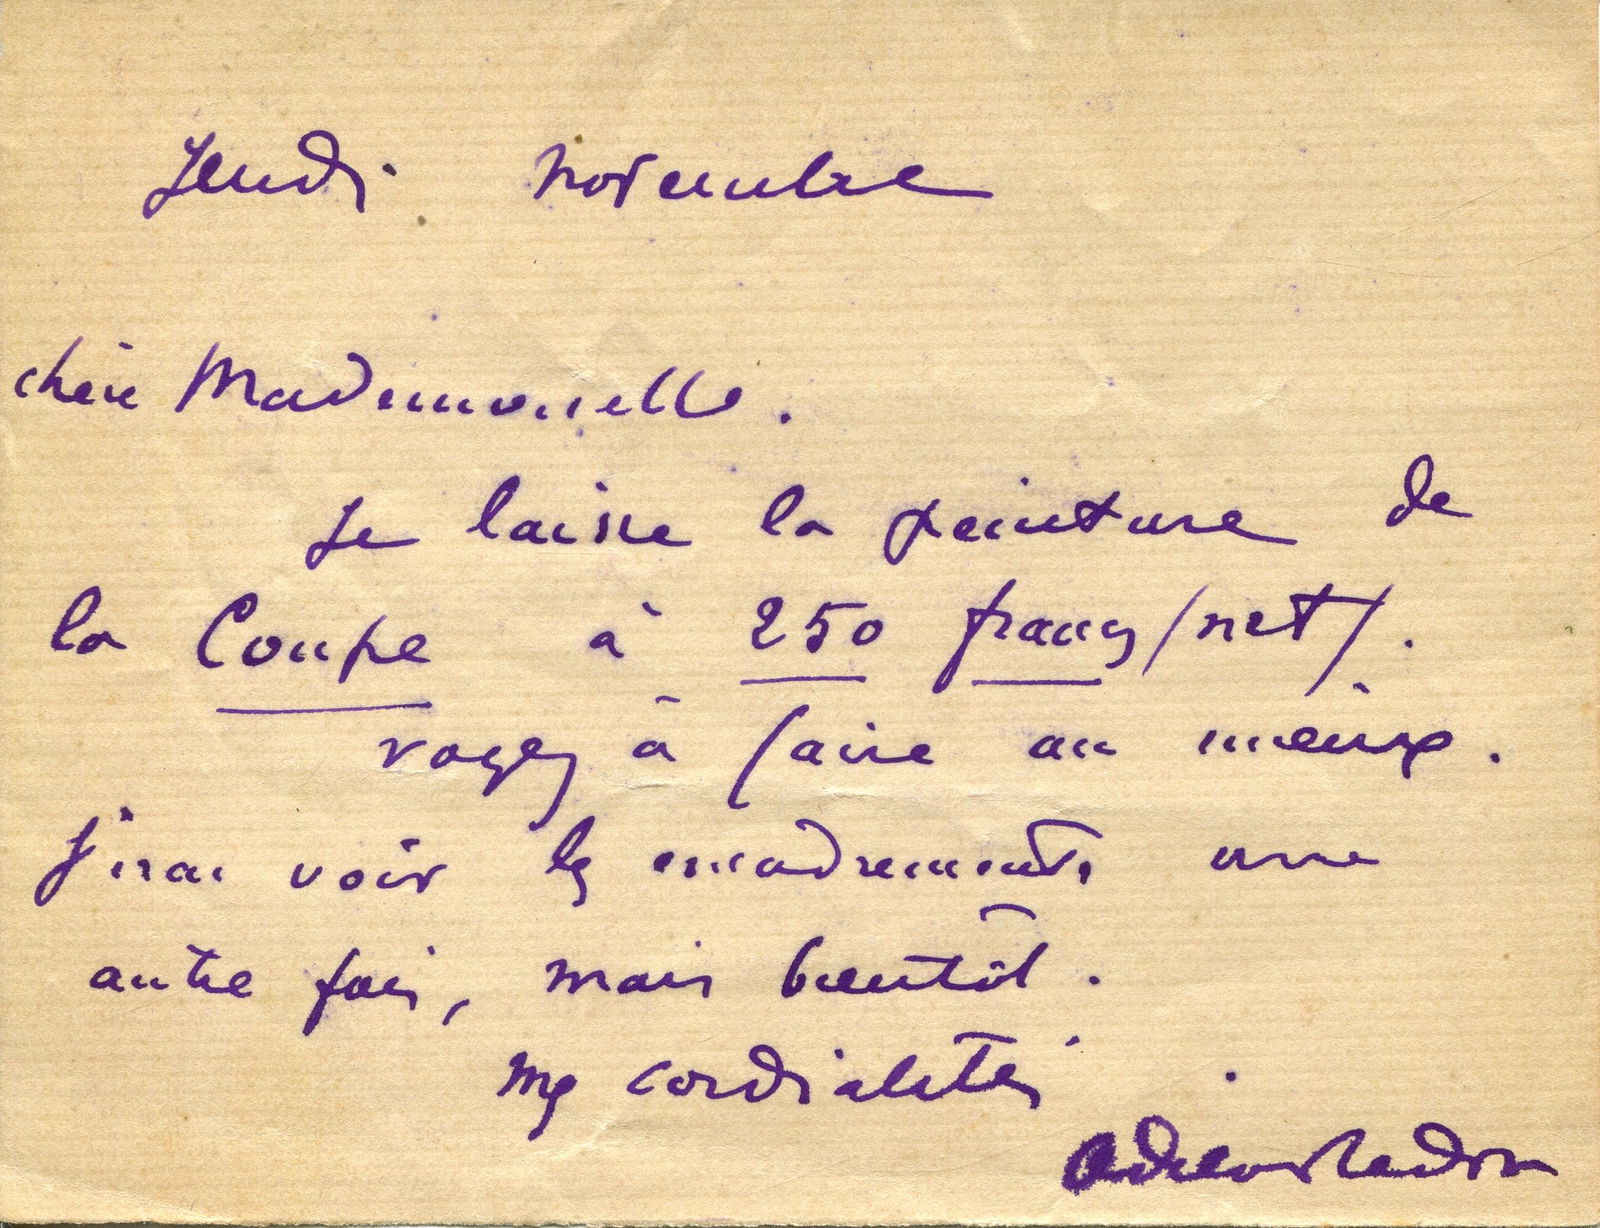 Jeudi novembre
chère Mademoiselle.
Je laisse la peinture de
la Coupe à 250 francs /net/.
voyez à faire au mieux.
J'irai voir les encadrements une
autre fois, mais bientôt.
Mes cordialités
Odilon Redon